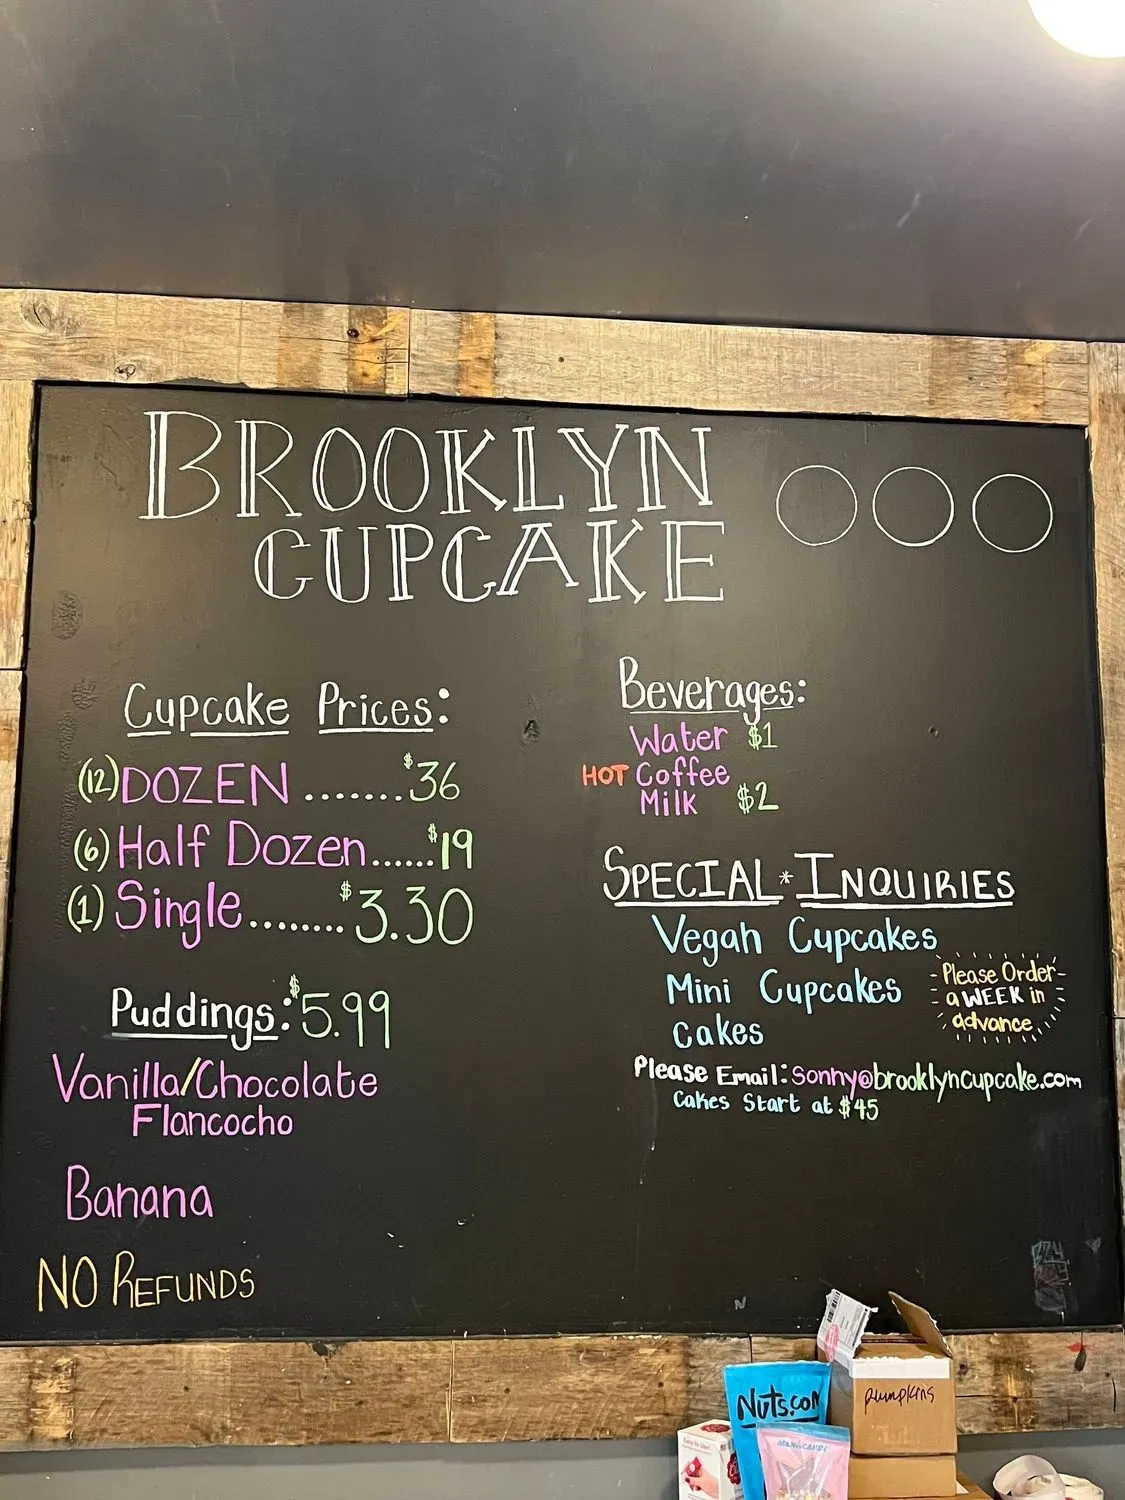 BROOKLYN
CUPCAKE
Cupcake Prices:
(12) DOZEN ....... $36
(6) Half Dozen...... $19
(1) Single........ $3.30
Puddings: $5.99
Vanilla/Chocolate
Flancocho
Banana
NO REFUNDS
Beverages:
Water $1
HOT Coffee
Milk $2
SPECIAL * INQUIRIES
Vegan Cupcakes
Mini Cupcakes
Cakes
Please Order
a WEEK in
advance
Please Email: Sonny@brooklyncupcake.com
Cakes Start at $45
pumpkins
Nuts.com